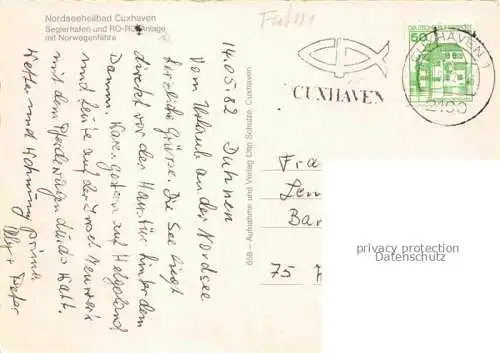 Nordseeheilbad Cuxhaven
Seglerhafen und RO-RO-Anlage
mit Norwegenfähre
14.05.82 Duhnen
Vom Urlaub an der Nordsee
herzliche Grüße. Die See liegt
direkt vor der Haustür hinter dem
Damm. Waren gestern auf Helgoland
und heute auf der Insel Neuwerk
mit dem Pferdewagen durchs Watt.
Wetter und Wohnung prima
+ Peter
658 - Aufnahme und Verlag Otto Schulze, Cuxhaven
CUXHAVEN
60
CUXHAVEN 1
2190
Fra
Len
Bar
75
privacy protection
Datenschutz